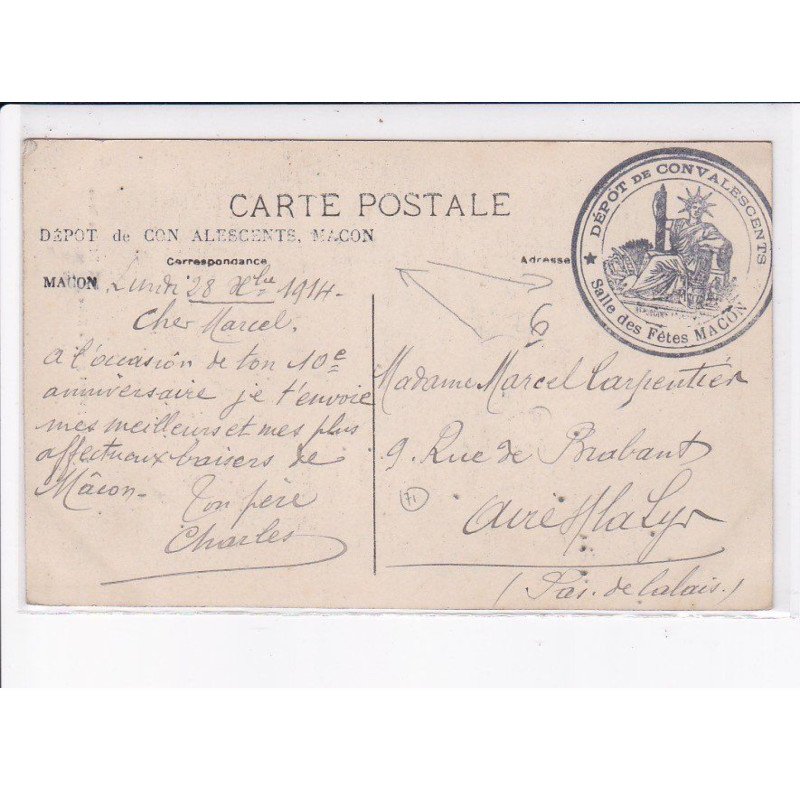 CARTE POSTALE
DÉPOT de CON ALESCENTS, MACON
Correspondance
Adresse
DÉPOT DE CONVALESCENTS
Salle des Fêtes MACON
MACON, Lundi 28 Xbre 1914.
Cher Marcel,
A l'occasion de ton 10e
anniversaire je t'envoie
mes meilleurs et mes plus
affectueux baisers de
Mâcon. Ton père
Charles
6
Madame Marcel Carpentier
9. Rue de Brabant
71
Aire s/ la Lys
(Pas. de Calais.)